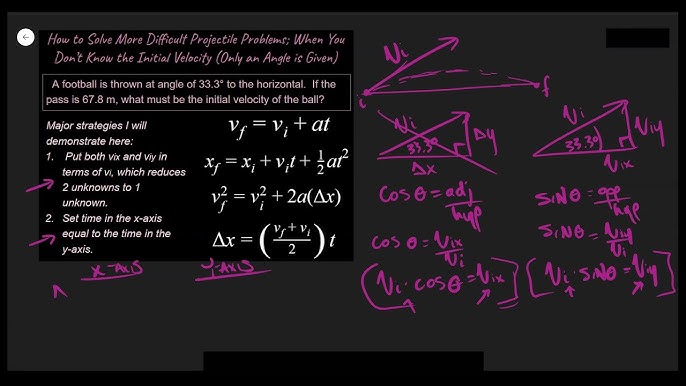 How to Solve More Difficult Projectile Problems; When You
Don't Know the Initial Velocity (Only an Angle is Given)
A football is thrown at angle of 33.3° to the horizontal. If the
pass is 67.8 m, what must be the initial velocity of the ball?
Major strategies I will
demonstrate here:
1. Put both vix and viy in
terms of vi, which reduces
2 unknowns to 1
unknown.
2. Set time in the x-axis
equal to the time in the
y-axis.
v_f = v_i + at
x_f = x_i + v_i t + ½at²
v_f² = v_i² + 2a(Δx)
Δx = ((v_f + v_i)/2) t
x-Axis
y-Axis
Vi
i
f
Vi
33.3°
Δy
Δx
cos θ = adj/hyp
cos θ = Vix/Vi
(Vi · cos θ = Vix)
Vi
33.3°
Viy
Vix
sin θ = opp/hyp
sin θ = Viy/Vi
[Vi · sin θ = Viy]